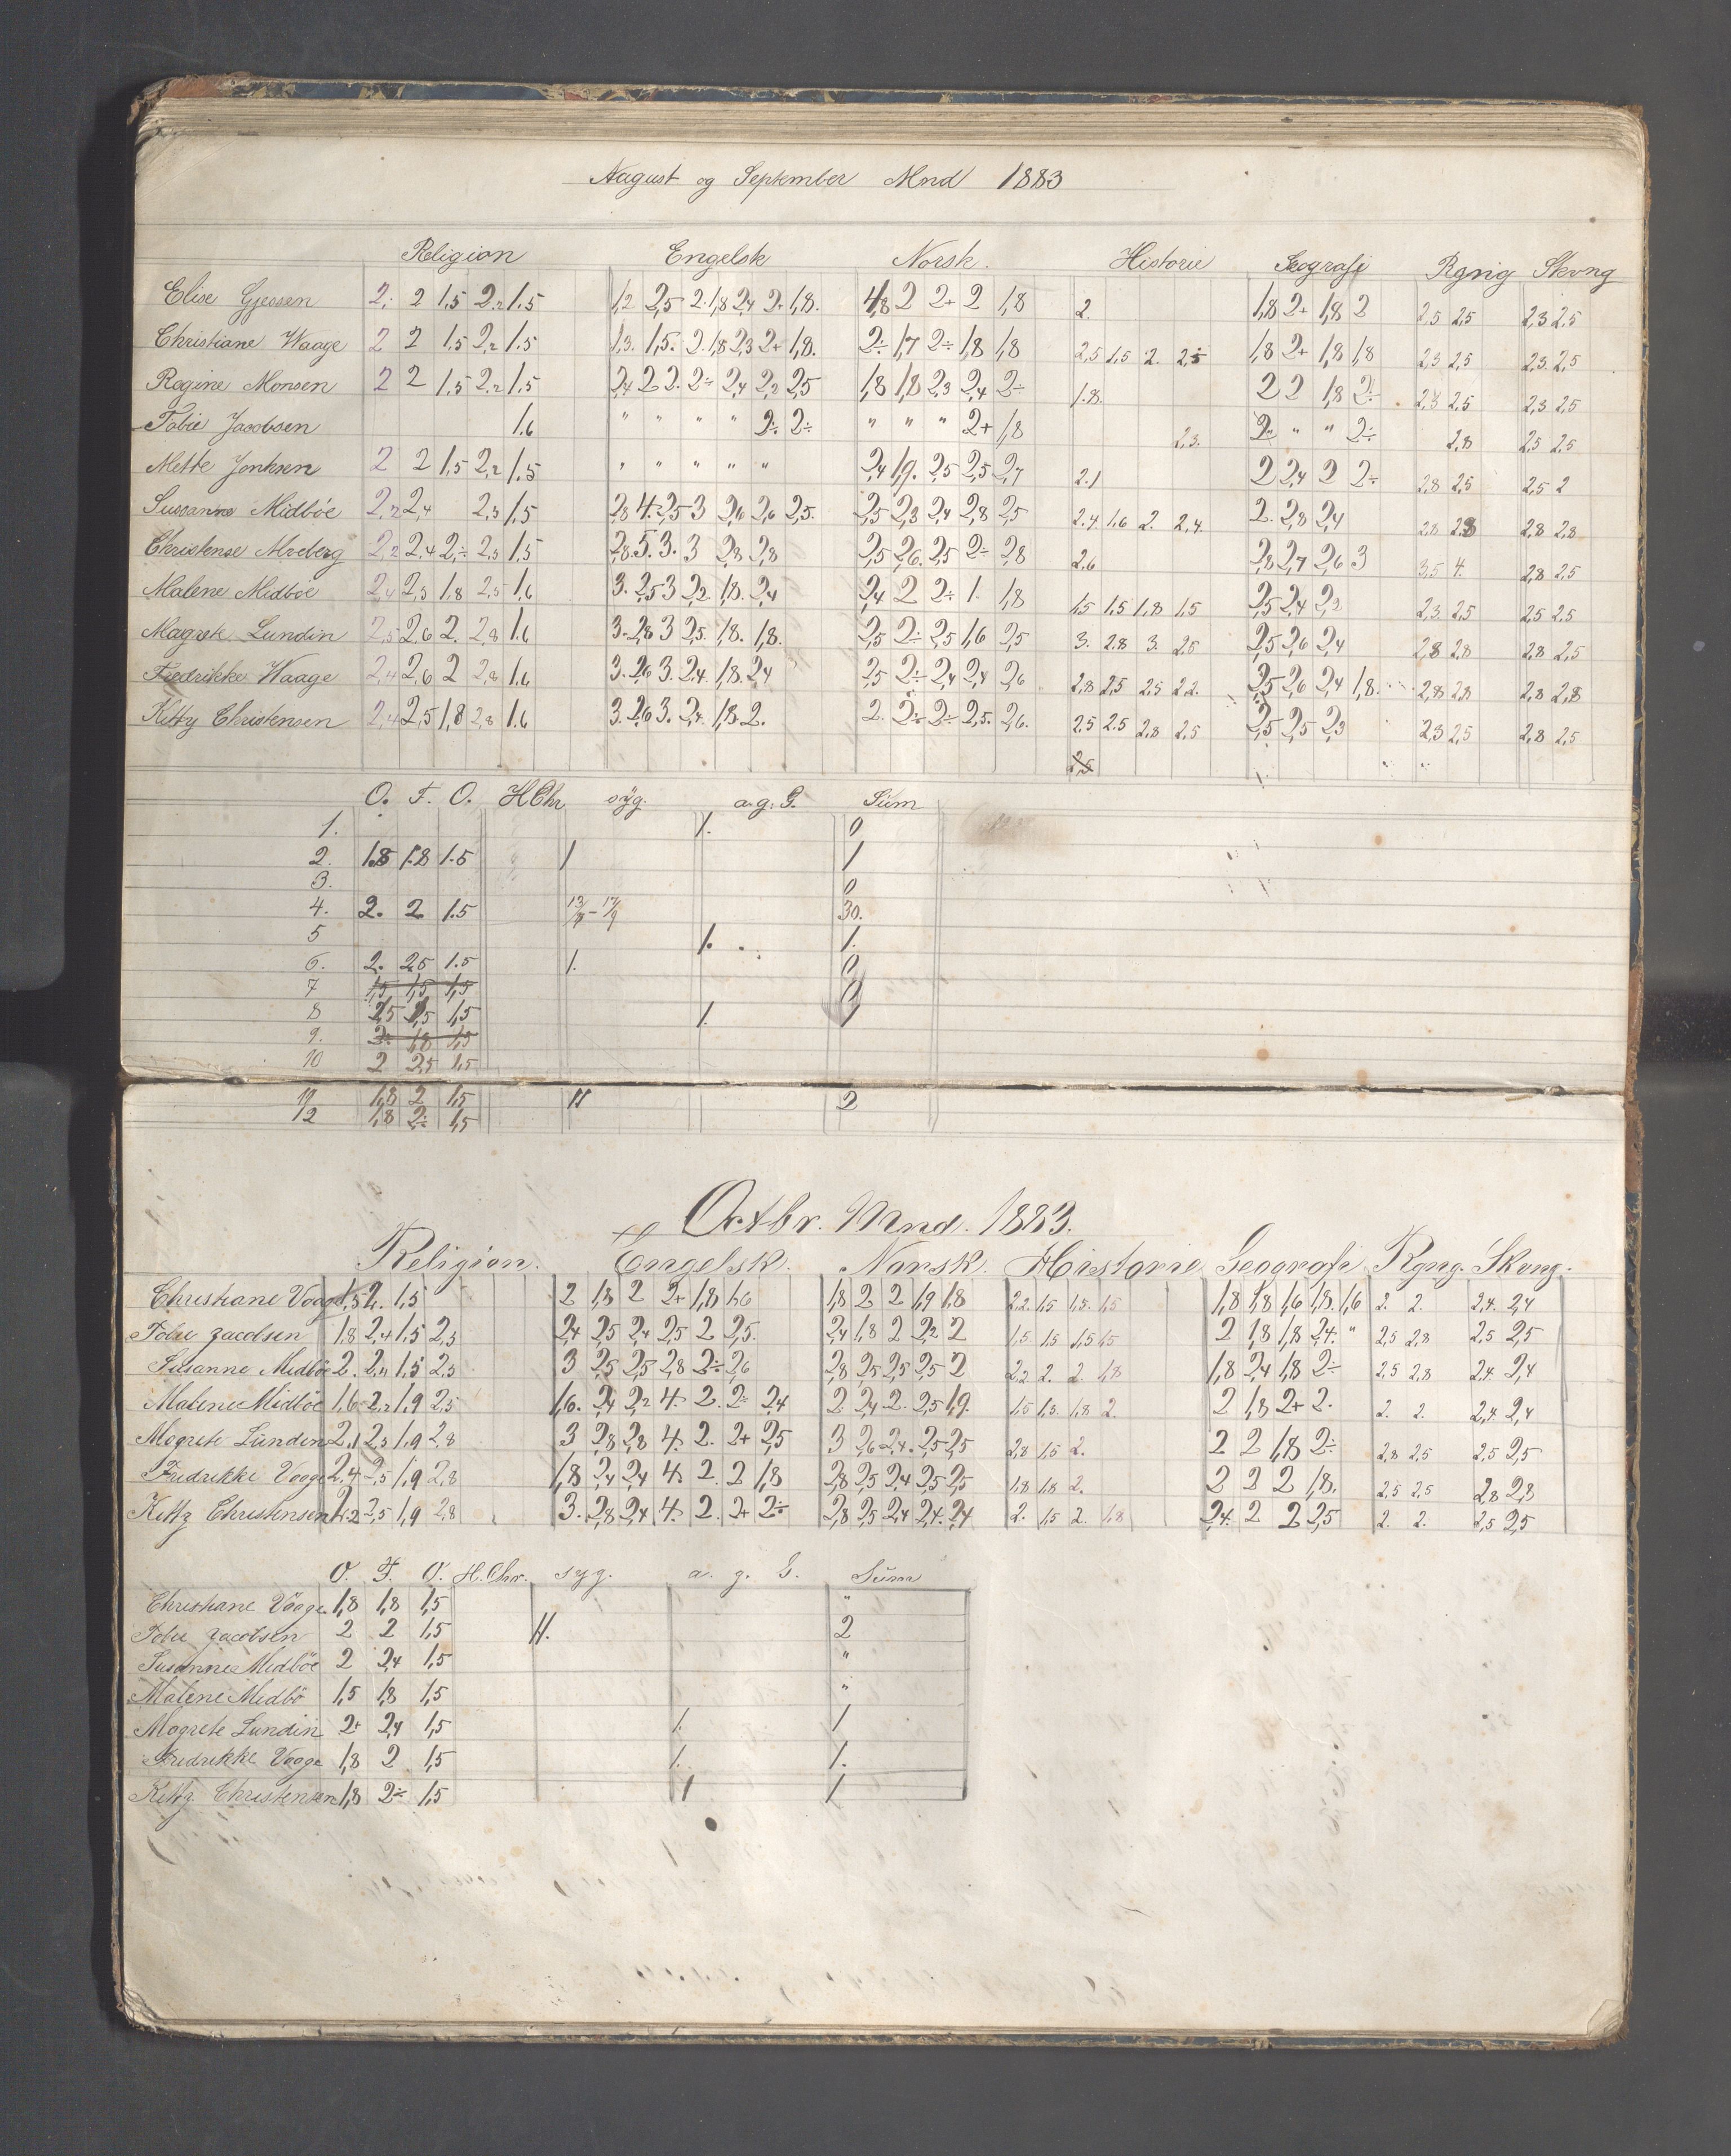 August og September Mnd 1883
Religion Engelsk Norsk. Historie Geografi Rgnig Skvng
Elise Gjessen 2. 2 1,5 2,2 1.5 1,2 2,5 2. 1,8 2,4 2. 1,8. 2 2+ 2 1,8 2. 1,8 2+ 1,8 2 2,5 2,5 2,3 2,5
Christiane Waage 2 2 1.5 2,2 1.5 1,3. 1,5. 2. 1,8 2,3 2+ 1,8. 2÷ 1,7 2÷ 1,8 1,8 2,5 1,5 2. 2,5 1,8 2+ 1,8 1,8 2,3 2,5 2,3. 2,5
Regine Monsen 2 2 1,5 2,2 1,5 2,4 2 2. 2÷ 2,4 2,2 2,5 1,8 1,8 2,3 2,4 2÷ 1.8. 2 2 1,8 2÷ 2,3 2,5 2,3 2,5
Tobie Jacobsen 1.6 " " " " 2÷ 2÷ " " " 2+ 1,8 2,3. 2 " " 2÷ 2,8 2,5 2,5
Mette Jonksen 2 2 1,5 2,2 1.5 " " " " " 2,4 1,9. 2,5 2,5 2,7 2.1 2 2,4 2 2÷ 2,8 2,5 2,5 2
Sussanne Midböe 2,2 2,4 2,3 1,5 2,8 4. 2,5 3 2,6 2,6 2,5. 2,5 2,3 2,4 2,8 2,5 2.4. 1.6 2. 2,4. 2. 2,8 2,4 2,8 2,8 2,8 2,8
Christense 2,2 2,4 2÷ 2,3 1.5 2,8. 5. 3. 3 2,8 2,8 2,5 2,6. 2,5 2÷ 2,8 2.6 2,8 2,7 2,6 3 3,5 4. 2,8 2,5
Malene Midböe 2,4 2,3 1.8 2,5 1,6 3. 2,5 3 2,2. 1,8. 2,4 2,4 2 2÷ 1. 1,8 1,5 1,5 1,8 1,5 2,5 2,4 2,2 2,3. 2,5 2,5 2,5
Magrete Lundin 2,5 2,6 2. 2,8 1.6 3. 2,8 3 2,5. 1,8. 1,8. 2,5 2÷ 2,5 1,6 2,5 3. 2.8 3. 2.5 2,5 2,6 2,4 2,8 2,8 2,8 2,5
Fredrikke Waage 2,4 2,6 2 2,8 1.6 3. 2,6 3. 2,4. 1,8. 2,4 2,5 2÷ 2,4 2,4 2,6 2,8 2,5 2,5 2.2. 2,5 2,6 2,4 1,8. 2,8 2,8 2,8 2,8
Kitty Christensen 2,4 2,5 1,8 2,8 1.6 3. 2,6 3. 2,4. 1,8. 2. 2. 2÷ 2÷ 2,5. 2,6. 2.5 2.5 2,8 2,5 2,5 2,5 2,3 2,3 2,5 2,8 2,5
O. F. O. H Chr syg. a. g. G. Sum
1. 1. 0
2. 1.8 1.8 1.5 1 1
3. 0
4. 2. 2 1.5 30.
5 1. 1.
6. 2. 2,5 1.5 1. 0
7 1,5 1,5 1,5 0
8 2,5 2,5 1,5 1. 1
9. 2. 1,8 1,5
10 2 2,5 1,5
11 1,8 2 1,5 11 2
12 1,8 2÷ 1,5
Octbr. Mnd. 1883.
Religion. Engelsk. Norsk. Historie Geografi Rgng. Skvng.
Christiane Vaage 1,5 2. 1,5 2 1,8 2 2+ 1,8 1,6 1,8 2 2 1,9 1,8 2.2. 1,5 1,5. 1,5 1,8 1,8 1,6 1,8. 1,6 2. 2. 2,4. 2,4
Tobie Jacobsen 1,8 2,4 1,5 2,3 2,4 2,5 2,4 2,5 2 2,5. 2,4 1,8 2 2,2 2 1,5. 1,5 1,5 1,5 2 1,8 1,8 2,4. " 2,5 2,8 2,5 2,5
Susanne Midböe 2. 2,4 1,5 2,3 3 2,5 2,5 2,8 2÷ 2,6 2,8 2,5 2,5 2,5 2 2,2 2. 2. 1,8 1,8 2,4 1,8 2÷ 2,5 2,8 2,4. 2,4
Malene Midböe 1,6 2,2 1,9 2,5 1,6. 2,4 2,2 4. 2. 2÷ 2,4 2. 2,4 2. 2,5 1,9. 1,5 1,3. 1,8 2. 2 1,8 2+ 2. 2. 2. 2,4. 2,4
Magrete Lundin 2,1 2,3 1,9 2,8 3 2,8 2,8 4. 2. 2+ 2,5 3 2,6 2,4. 2,5 2,5 2,8 1,5 2. 2 2 1,8 2÷ 2,8 2,5 2,5 2,5
Fredrikke Vaage 2,4 2,5 1,9 2,8 1,8 2,4 2,4 4. 2. 2 1,8 2,8 2,5 2,4 2,5 2,5 1,8 1,8 2. 2 2 2 1,8. 2,5 2,5 2,8 2,8
Kitty Christensen 2,5 1,9 2,8 3. 2,8 2,4 4. 2. 2+ 2÷ 2,8 2,5 2,4 2,4. 2,4 2. 1,5 2. 1,8 2,4. 2 2 2,5 2. 2. 2,5 2,5
O. F. O. H. Chr. syg. a. g. G. Sum
Christiane Vaage 1,8 1,8 1,5 "
Tobie Jacobsen 2 2 1,5 11. 2
Susanne Midböe 2 2,4 1,5 "
Malene Midbö 1,5 1,8 1,5 "
Magrete Lundin 2+ 2,4 1,5 1. 1
Fredrikke Vaage 1,8 2 1,5 1. 1.
Kitty Christensen 1,8 2÷ 1,5 1 1